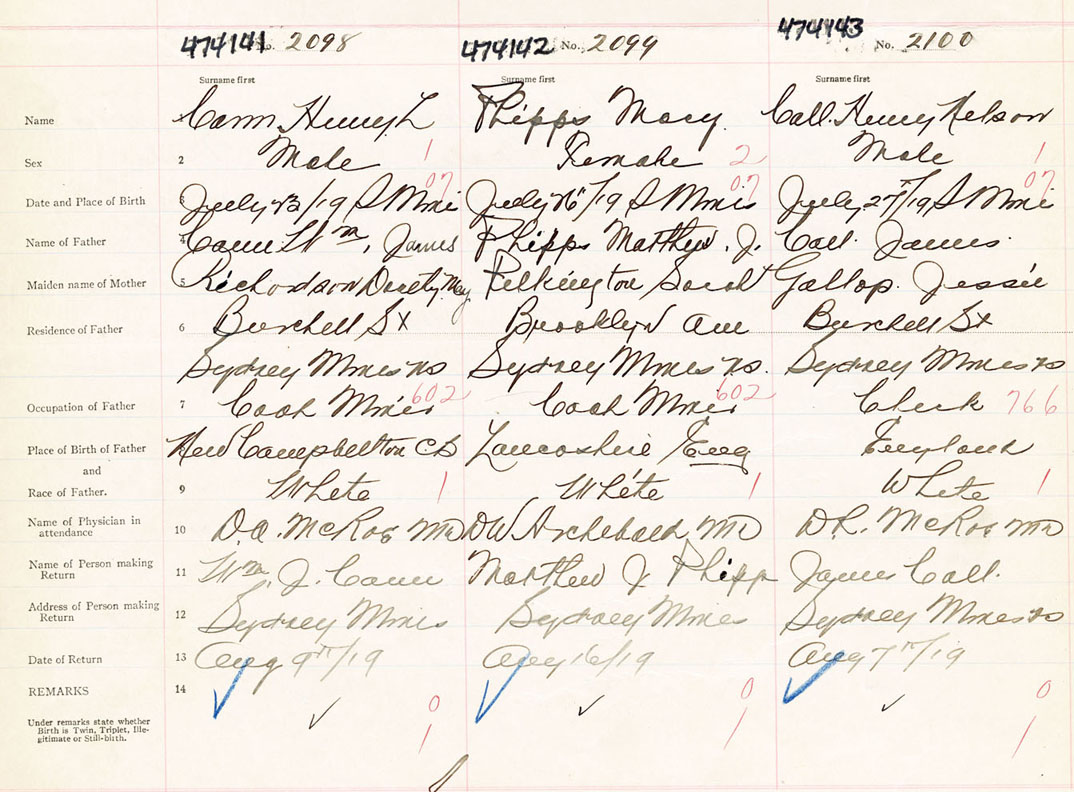 474141 No. 2098 474142 No. 2099 474143 No. 2100
Surname first Surname first Surname first
Name Cann Henry L Phipps Mary. Call. Henry Nelson
Sex 2 Male 1 Female 2 Male 1
07 07 07
Date and Place of Birth 3 July 23/19 S Mines July 26"/19 S Mines July 27"/19 S Mines
Name of Father 4 Cann Wm, James Phipps Matthew. J. Call. James.
Maiden name of Mother 5 Richardson May Pilkington Sarah Gallop. Jessie
Residence of Father 6 Burchell St Brooklyn Ave Burchell St
Sydney Mines NS Sydney Mines NS. Sydney Mines NS
Occupation of Father 7 Coal Miner 602 Coal Miner 602 Clerk 766
Place of Birth of Father New Campbellton CB Lancashire Eng England
and
Race of Father. 9 White 1 White 1 White 1
Name of Physician in attendance 10 McRae MD DW Archibald MD McRae MD
Name of Person making Return 11 Wm. J. Cann Matthew J Phipps James Call.
Address of Person making Return 12 Sydney Mines Sydney Mines Sydney Mines NS
Date of Return 13 Aug 9"/19 Aug 16/19 Aug 7"/19
REMARKS 14 0 0 0
Under remarks state whether
Birth is Twin, Triplet, Ille-
gitimate or Still-birth. 1 1 1